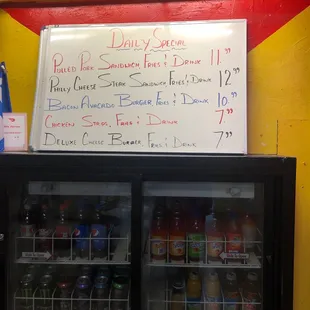 Daily Special
Pulled Pork Sandwich Fries & Drink 11.99
Philly Cheese Steak Sandwich Fries & Drink 12.99
Bacon Avocado Burger Fries & Drink 10.99
Chicken Strips, Fries & Drink 7.99
Deluxe Cheese Burger Fries & Drink 7.99